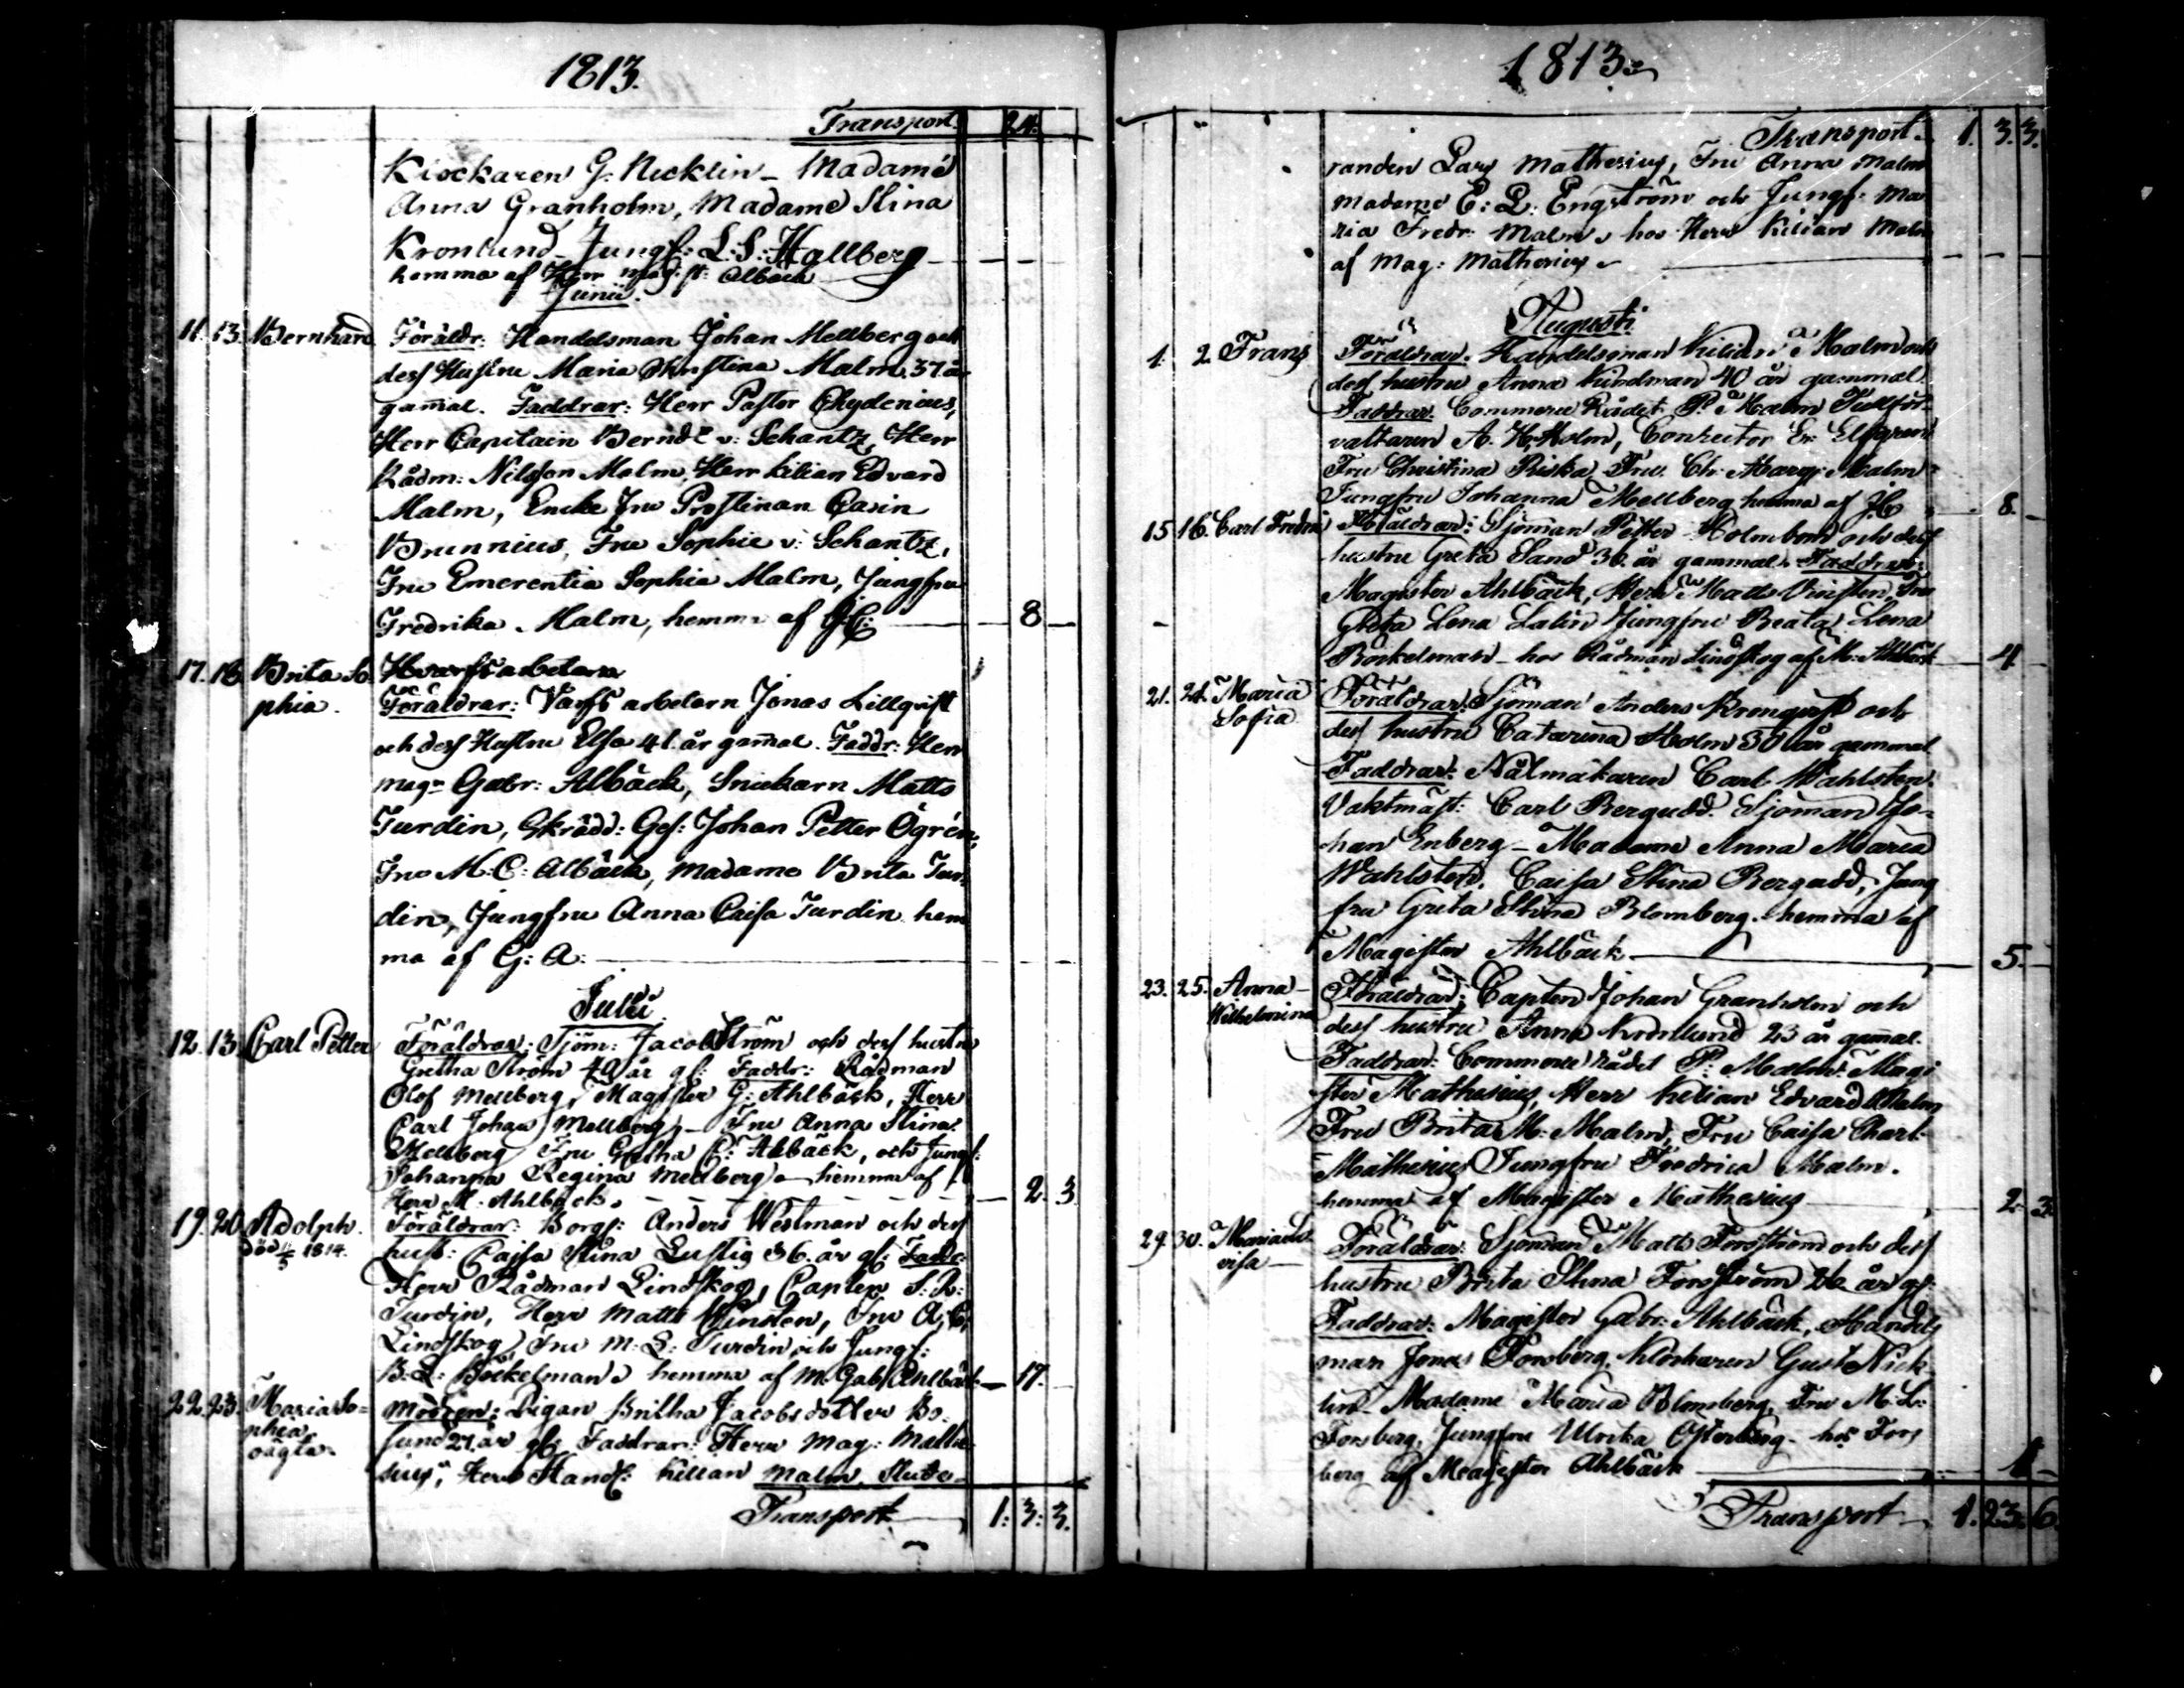 1813.
Transport. 24.
Klockaren G: Necklin – Madame
Anna Granholm, Madame Stina
Kronlund – Jungf: L: S: Hallberg
hemma af Herr mag: st: Albäck
Junii.
11. 13. Bernhard Föräldr: Handelsman Johan Mellberg och
dess Hustru Maria Christina Malm 37 år
gammal. Faddrar: Herr Pastor Chydenius,
Herr Capitain Berndt v: Schantz, Herr
Rådm: Nilsson Malm, Herr Kilian Edvard
Malm, Encke Fru Prostinan Carin
Brunnius, Fru Sophie v: Schantz,
Fru Emerentia Sophia Malm, Jungfru
Fredrika Malm, hemma af J: C: 8
17. 18. Brita So Hvarfsarbetare
phia. Föräldrar: Varfs arbetarn Jonas Lillqvist
och dess Hustru Elsa 41. år gammal. Faddr: Herr
mag:r Gabr: Albäck, Snickarn Matts
Turdin, Skrädd: Ges: Johan Petter Ögrén,
Fru M: C: Albäck, Madame Brita Tur
din, Jungfru Anna Caisa Turdin hem
ma af G: A:
Julii
12. 13. Carl Petter Föräldrar: Sjöm: Jacob Ström och dess hustru
Gretha Ström 40 år gl: Faddr: Rådman
Olof Mellberg, Magister G: Ahlbäck, Herr
Carl Johan Mellberg – Fru Anna Stina
Mellberg Fru Gretha C: Ahlbäck, och Jungf:
Johanna Regina Mellberg – hemma af
Herr M. Ahlbäck. 2. 3
19. 20. Adolph. Föräldrar: Borgs: Anders Westman och dess
död 11/5 1814. hust: Caisa Stina Lustig 36. år gl: Fadd:
Herr Rådman Lindskog, Capten S: R:
Turdin, Herr Matts Winsten, Fru A: C:
Lindskog, Fru M: S: Turdin och Jungf:
B: L: Böckelman hemma af M. Gab: Ahlbäck 17.
22. 23. Maria So= Modren: Pigan Britha Jacobsdotter Bo=
phia, sund 27. år gl: Faddrar: Herr Mag: Mathe
oägta sius, Herr Handl: Kilian Malm, Stude=
Transport 1: 3: 3.
1813.
Transport. 1. 3. 3.
randen Lars Mathesius, Fru Anna Malm
Madame E: L: Engström och Jungf: Ma
ria Fredr: Malm hos Herr Kilian Malm
af Mag: Mathesius
Augusti
1. 2. Frans Föräldrar. Handelsman Kilian Malm och
dess hustru Anna Kindman 40 år gammal.
Faddrar. Commerce Rådet P: Malm Tullför-
valtaren A. H. Holm, Conrector Er: Elfgren
Fru Christina Riska, Fru. Ch: Marg: Malm
Jungfru Johanna Mellberg hemma af J: C 8.
15. 16. Carl Fredric Föräldrar: Sjöman Petter Holmbom och dess
hustru Greta Sand 36. år gammal. Faddrar:
Magister Ahlbäck, Herr Matts Winsten, Fru
Greta Lena Lalin Jungfru Beata Lena
Böckelman – hos Rådman Lindskog af M: Ahlbäck 4.
21. 24. Maria Föräldrar: Sjöman Anders Kronqvist och
Sofia dess hustru Catarina Holm 30 år gammal
Faddrar: Nålmakaren Carl Wahlsten.
Vaktmäst: Carl Bergudd. Sjöman Jo-
han Enberg – Madame Anna Maria
Wahlsten. Caisa Stina Bergudd, Jung
fru Greta Stina Blomberg. hemma af
Magister Ahlbäck 5.
23. 25. Anna Föräldrar: Capten Johan Granholm och
Wilhelmina dess hustru Anna Kronlund 23 år gammal.
Faddrar: Commerce Rådet P: Malm. Magi
ster Mathesius, Herr Kilian Edvard Malm
Fru Brita M: Malm, Fru Caisa Charl:
Mathesius, Jungfru Fredrica Malm.
hemma af Magister Mathesius 2. 3.
29. 30. Maria Lo Föräldrar. Sjöman Matts Forsström och dess
visa hustru Brita Stina Forsström 26 år gl:
Faddrar: Magister Gabr: Ahlbäck, Handels
man Jonas Forsberg, Klockaren Gust Nick
lin – Madame Maria Blomberg, Fru M: L:
Forsberg, Jungfru Ulrika Österberg – hos Fors
berg af Magister Ahlbäck 1
Transport 1. 23. 6.